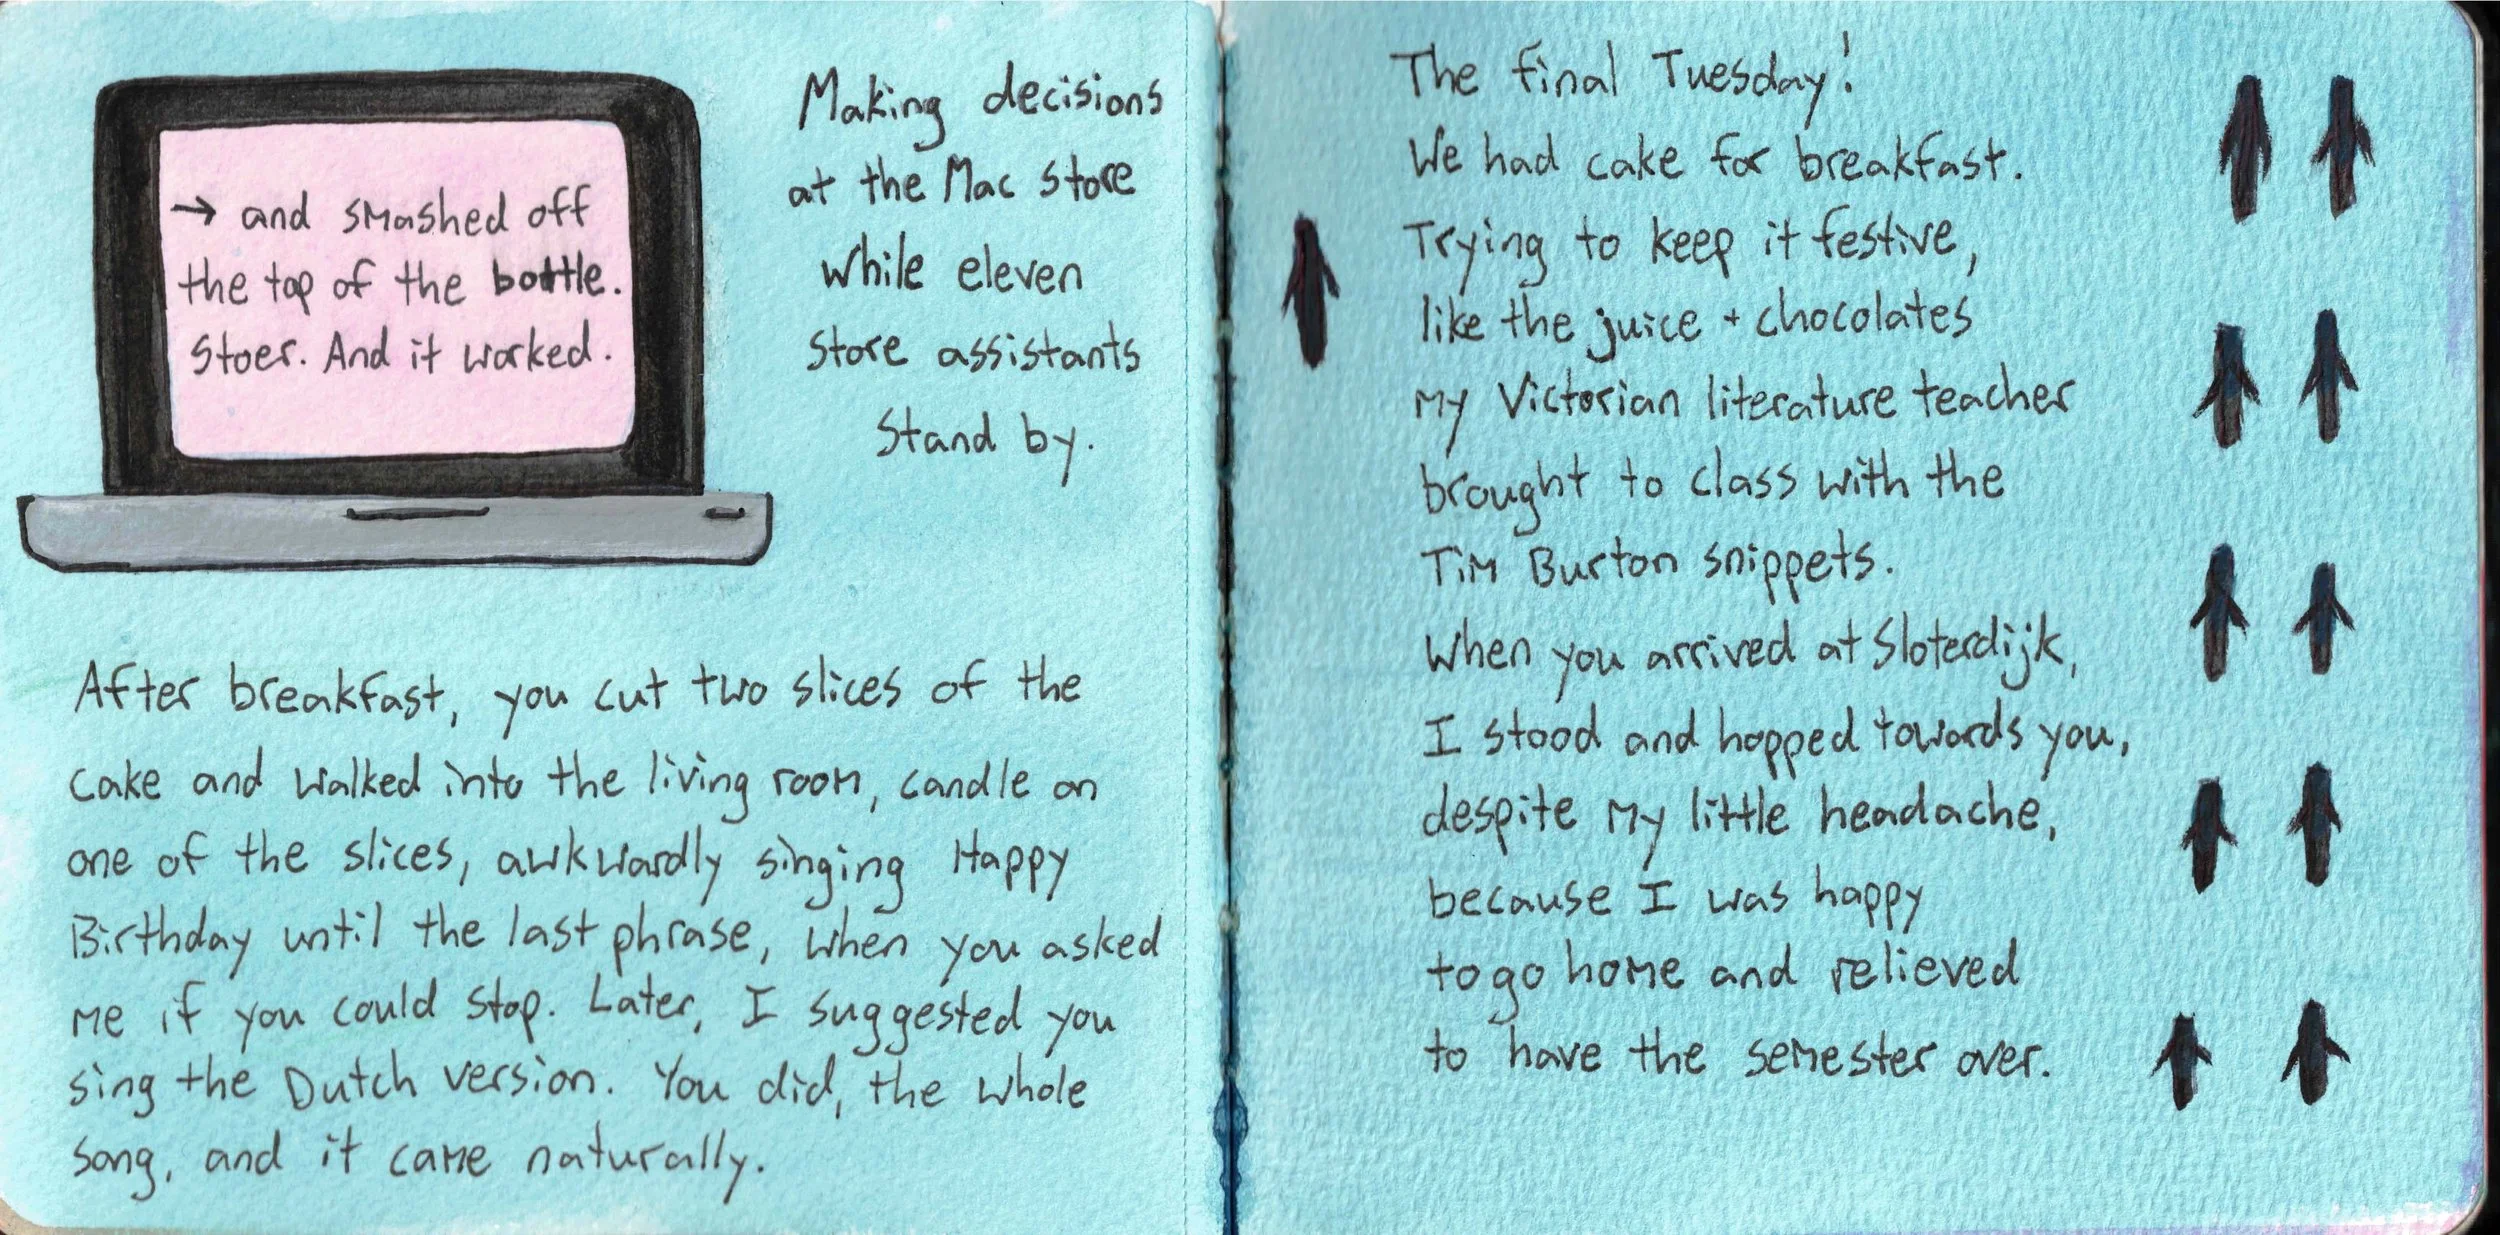 → and smashed off
the top of the bottle.
Stoer. And it worked.
Making decisions
at the Mac store
while eleven
store assistants
stand by.
After breakfast, you cut two slices of the
cake and walked into the living room, candle on
one of the slices, awkwardly singing Happy
Birthday until the last phrase, when you asked
me if you could stop. Later, I suggested you
sing the Dutch version. You did, the whole
song, and it came naturally.
The final Tuesday!
We had cake for breakfast.
Trying to keep it festive,
like the juice + chocolates
my Victorian literature teacher
brought to class with the
Tim Burton snippets.
When you arrived at Sloterdijk,
I stood and hopped towards you,
despite my little headache,
because I was happy
to go home and relieved
to have the semester over.